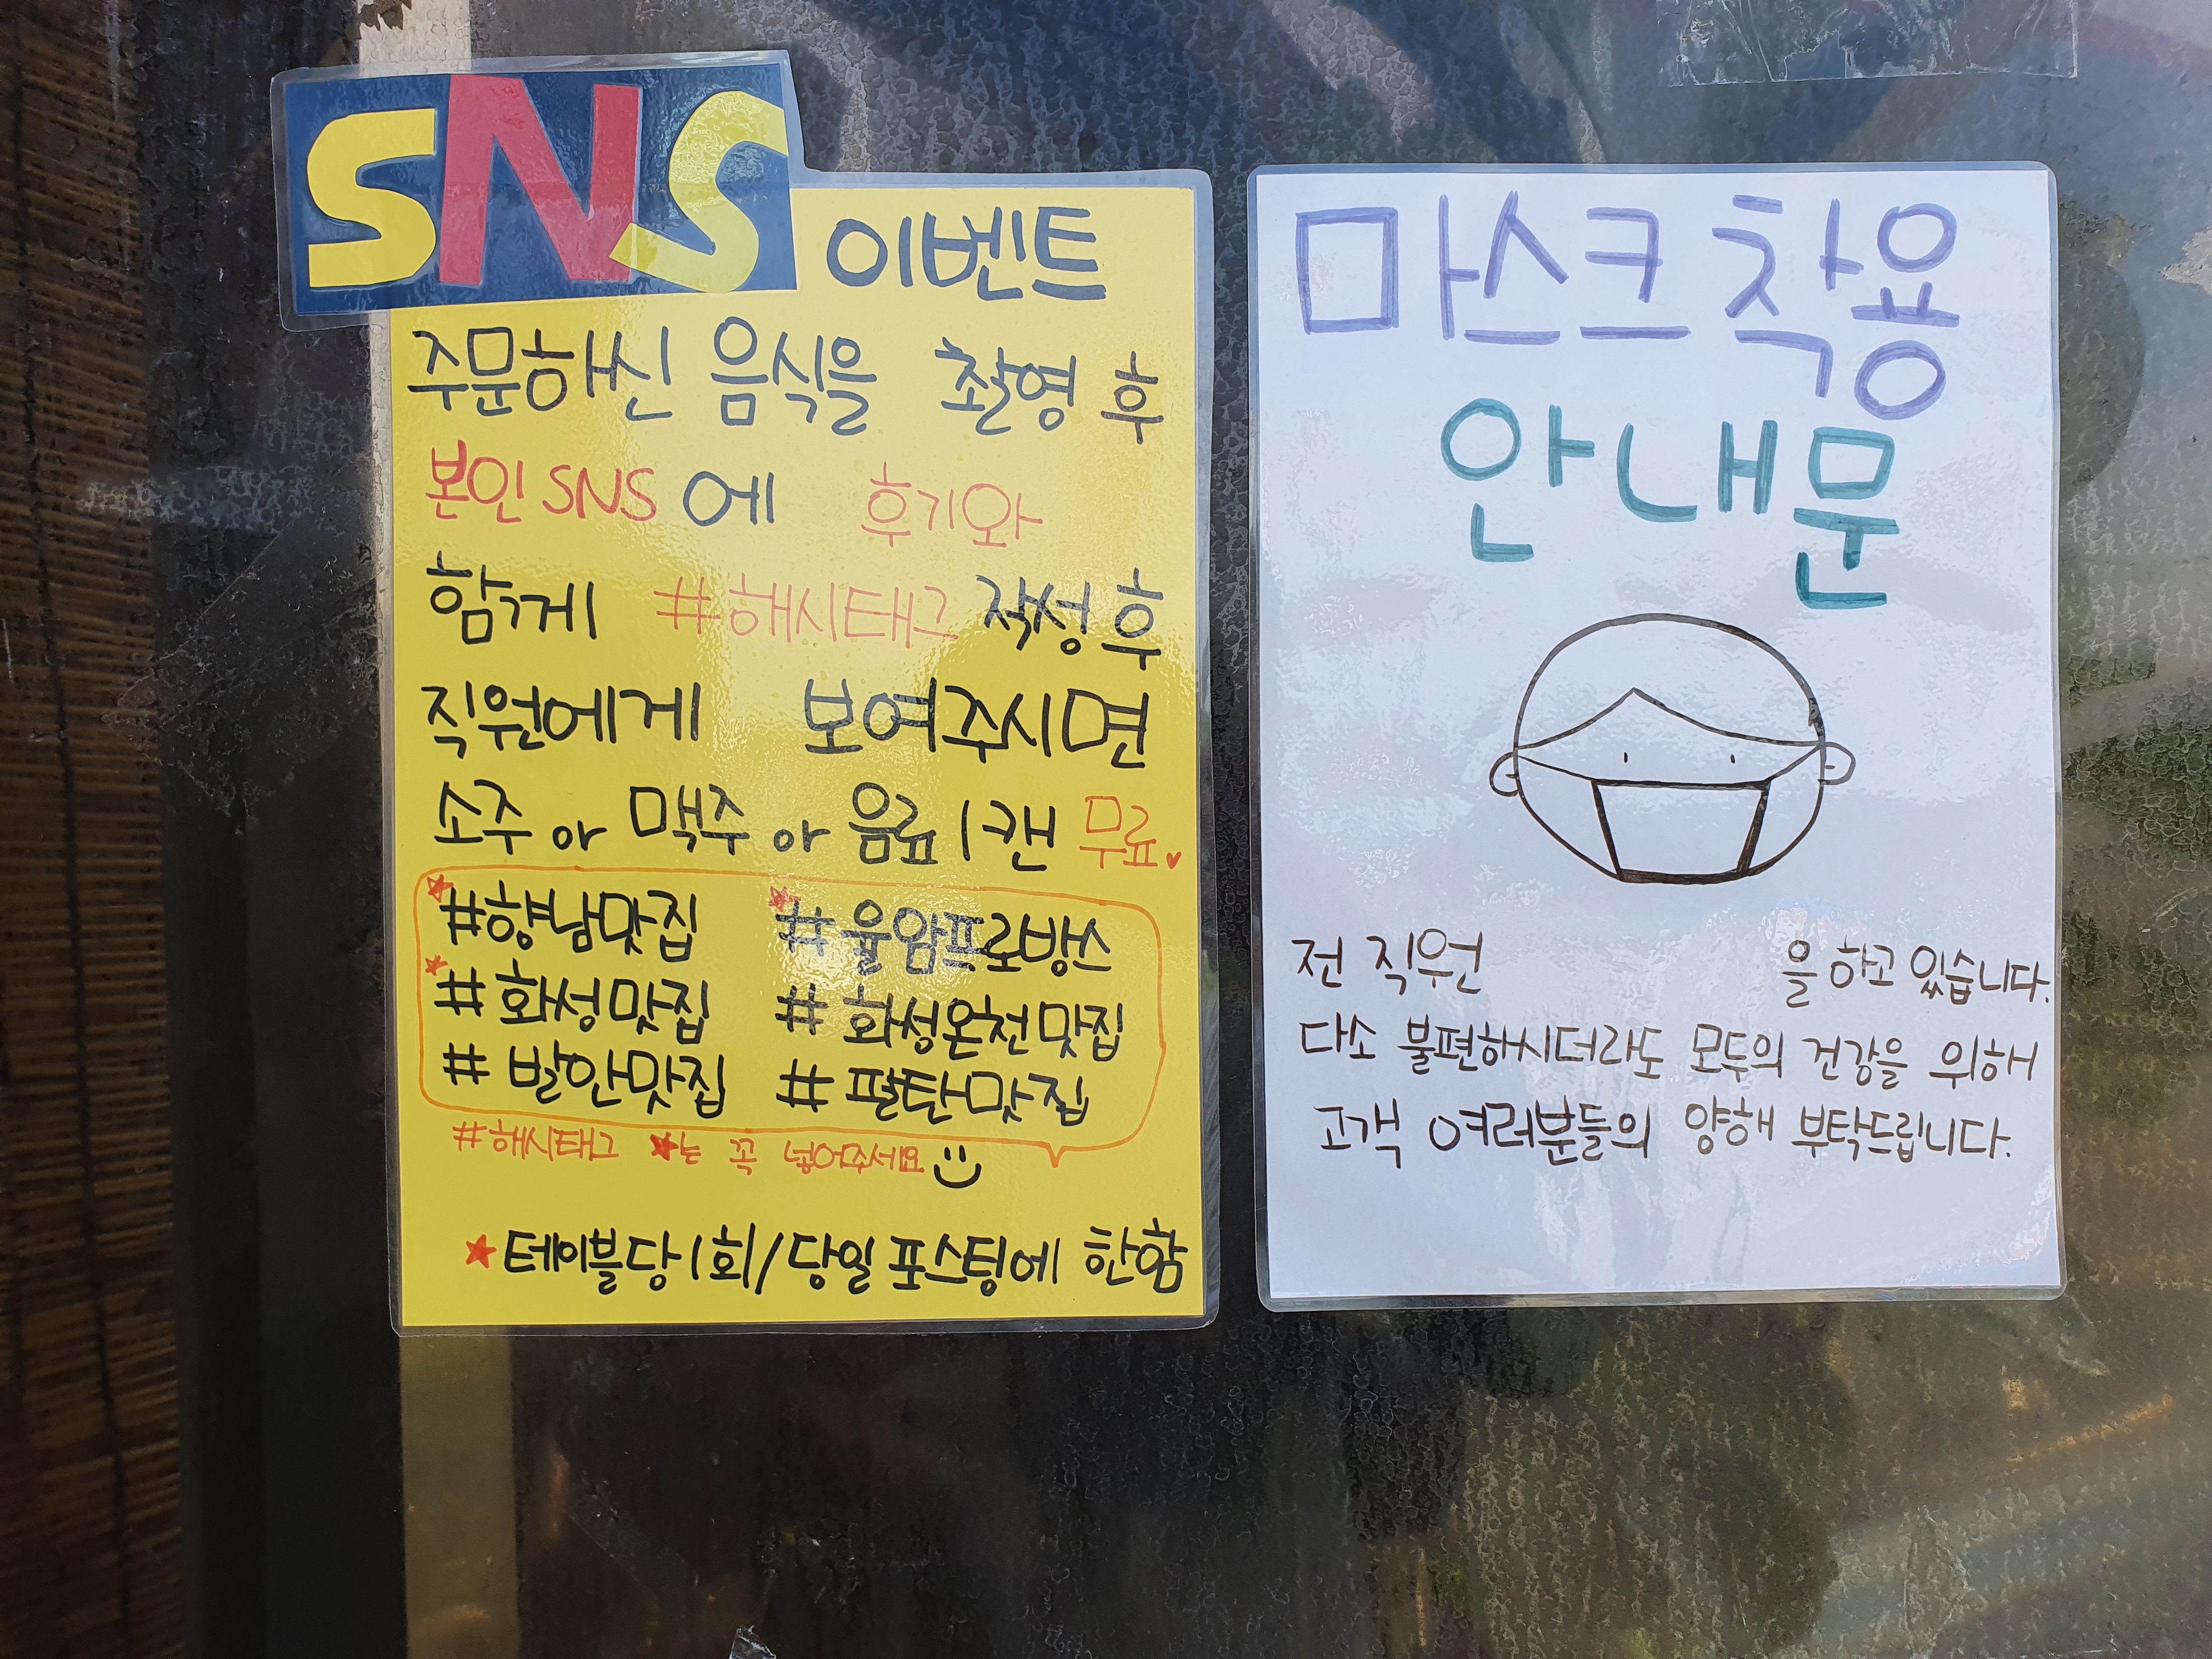 SNS 이벤트
주문하신 음식을 촬영 후
본인 SNS 에 후기와
함께 #해시태그 작성 후
직원에게 보여주시면
소주 or 맥주 or 음료 1캔 무료
#향남맛집 #율암프로방스
#화성맛집 #화성온천맛집
#발안맛집 #팔탄맛집
#해시태그 ★는 꼭 넣어주세요
★테이블당 1회/당일 포스팅에 한함
마스크 착용
안내문
전 직원 을 하고 있습니다.
다소 불편하시더라도 모두의 건강을 위해
고객 여러분들의 양해 부탁드립니다.